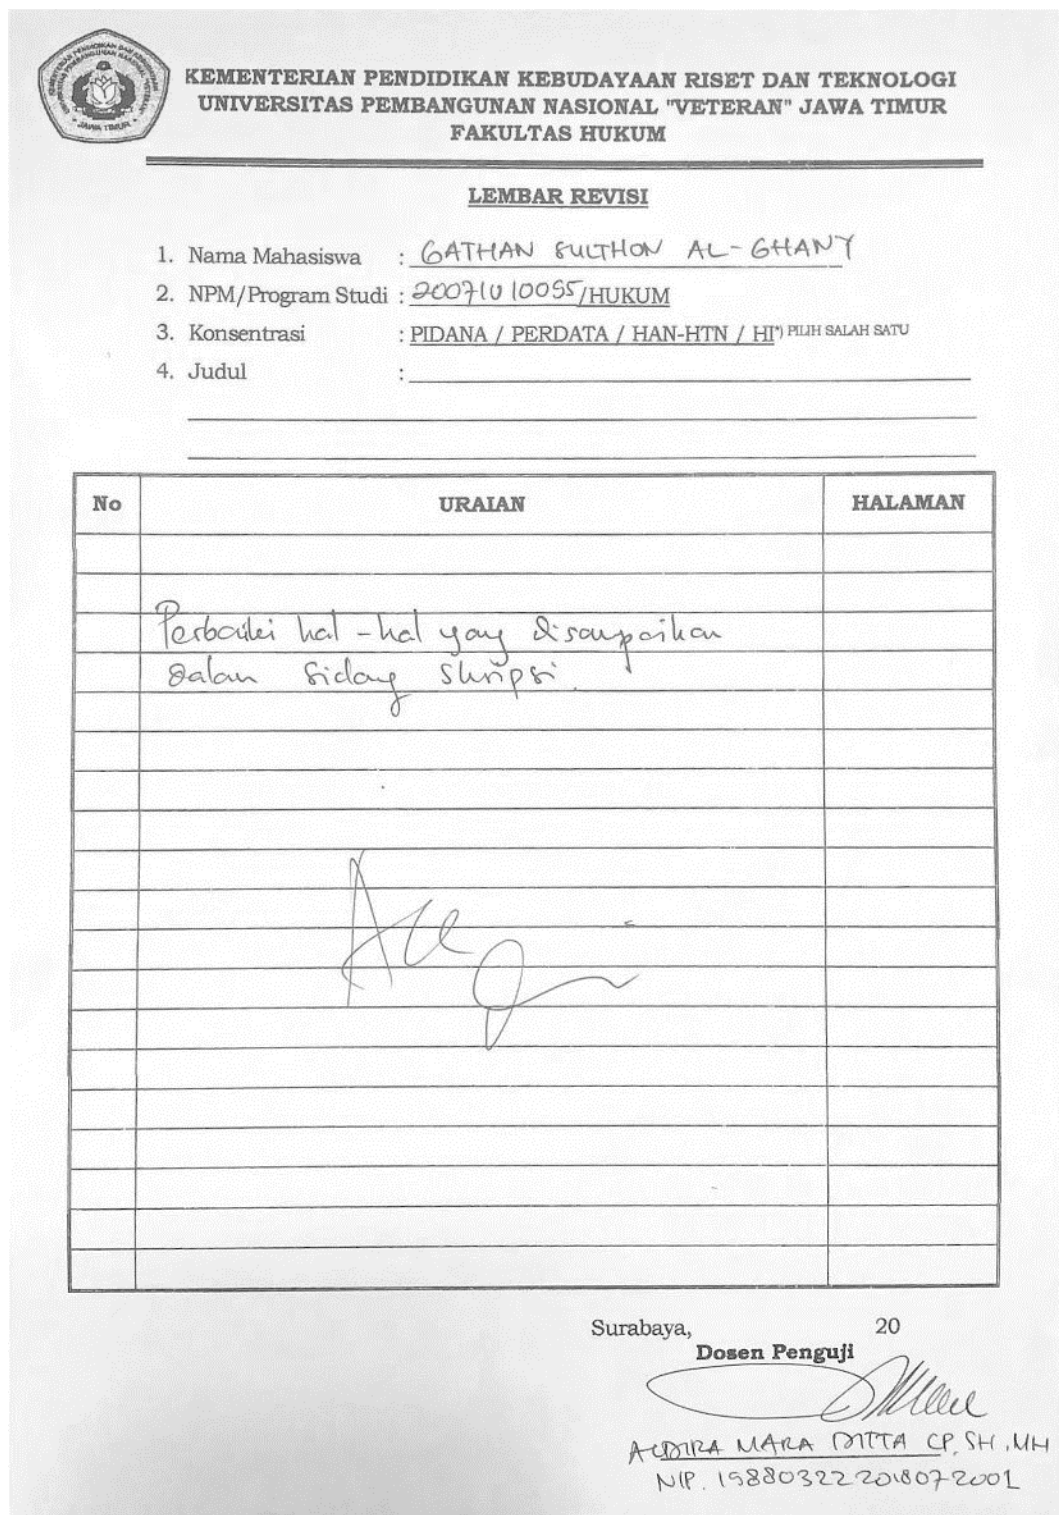 KEMENTERIAN PENDIDIKAN KEBUDAYAAN RISET DAN TEKNOLOGI
UNIVERSITAS PEMBANGUNAN NASIONAL "VETERAN" JAWA TIMUR
FAKULTAS HUKUM
LEMBAR REVISI
1. Nama Mahasiswa : GATHAN SULTHON AL-GHANY
2. NPM/Program Studi : 20071010055/HUKUM
3. Konsentrasi : PIDANA / PERDATA / HAN-HTN / HI*) PILIH SALAH SATU
4. Judul :
No URAIAN HALAMAN
Perbaiki hal-hal yang disampaikan
dalam sidang skripsi.
Acc
Surabaya, 20
Dosen Penguji
ALDIRA MARA DITTA CP, SH, MH
NIP. 198803222018072001